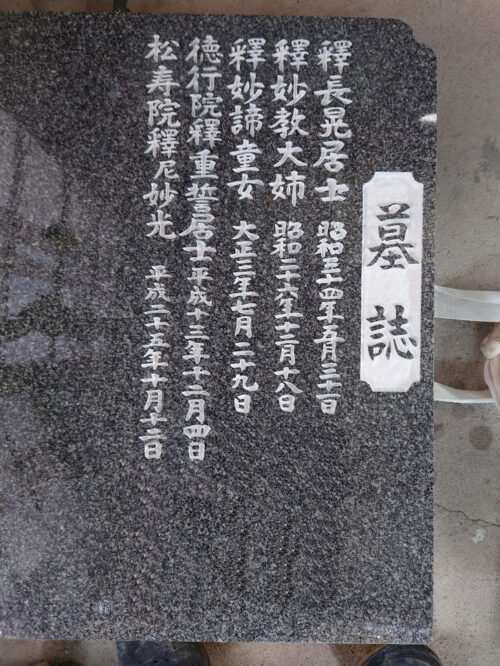 墓誌
釋長晃居士 昭和三十四年五月三十一日
釋妙教大姉 昭和二十六年十二月十八日
釋妙諦童女 大正三年七月二十九日
德行院釋重誓居士 平成十三年十二月四日
松寿院釋尼妙光 平成二十五年十月十二日